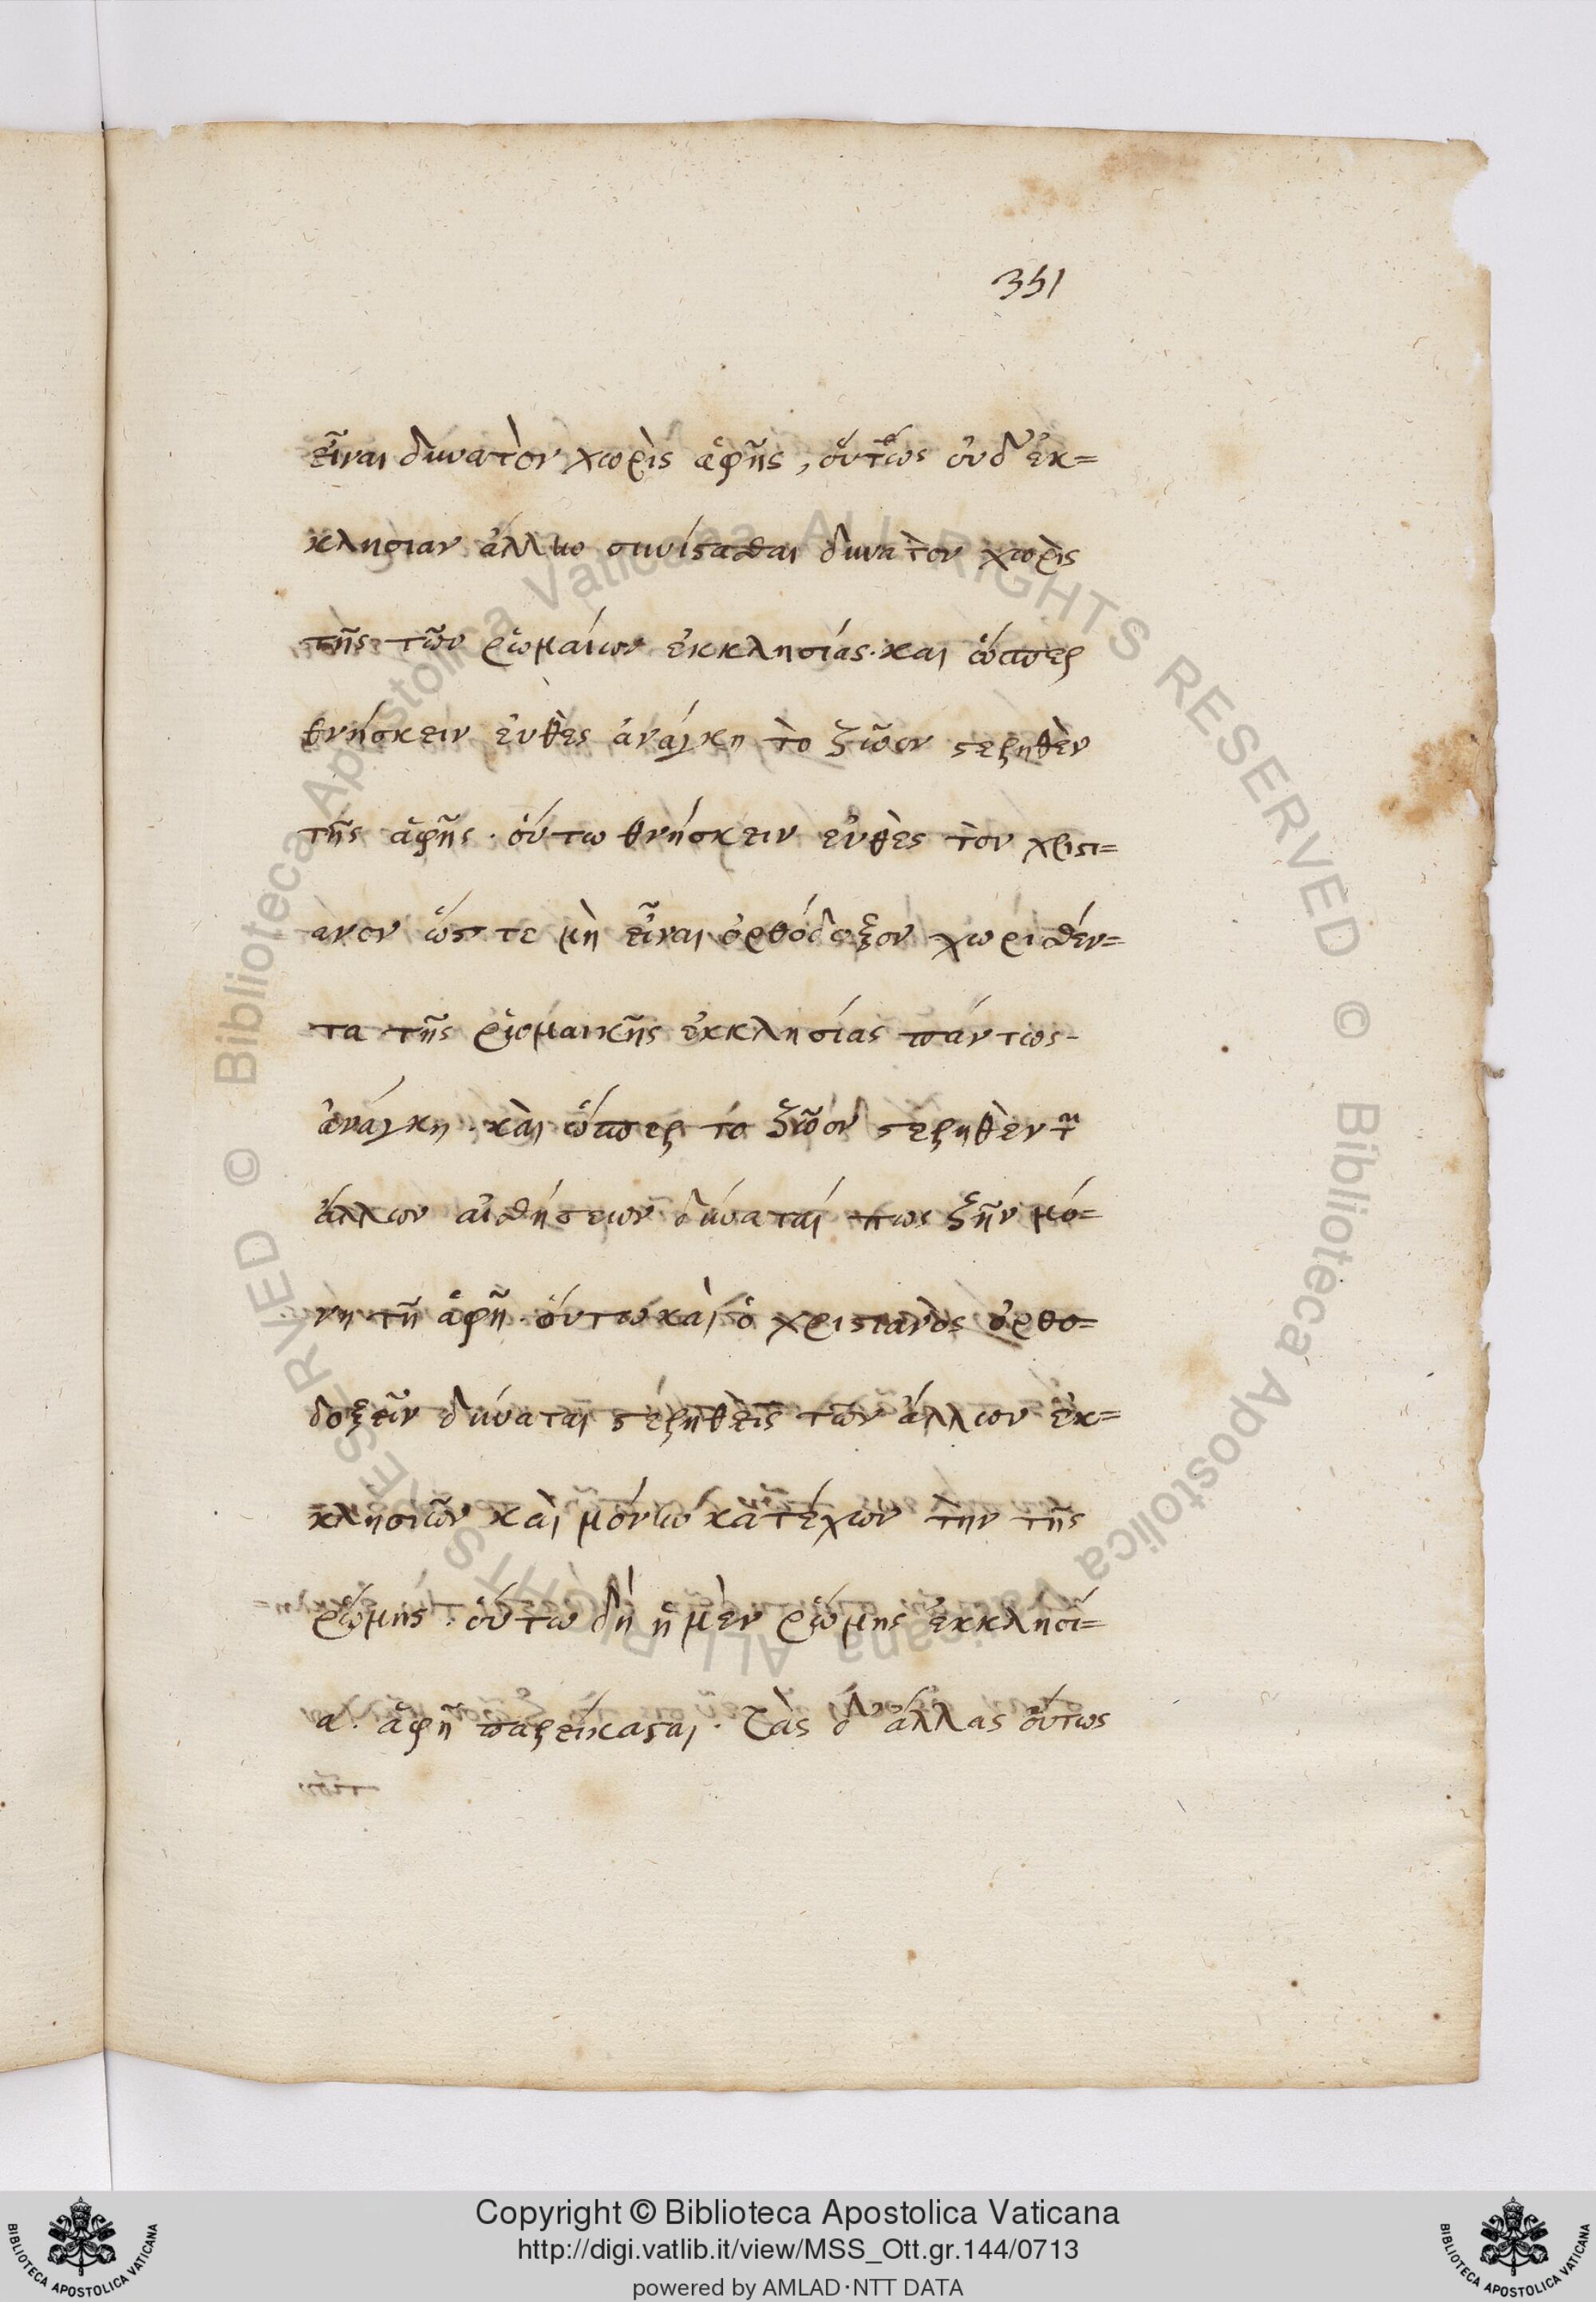 351
εἶναι δυνατὸν χωρὶς ἁφῆς, οὕτως οὐδ' ἐκ=
κλησιαν ἄλλην συνίστασθαι δυνατὸν χωρὶς
τῆς τῶν ῥωμαίων ἐκκλησίας. και ὥσπερ
θνήσκειν ἐυθὲς ἀνάγκη τὸ ζῶον στερηθὲν
τῆς ἁφῆς. ὅυτω θνήσκειν ἐυθὲς τὸν χριστι=
ανον ὥστε μὴ εἶναι ὀρθόδοξον χωρισθέν=
τα τῆς ῥωμαικῆς ἐκκλησίας πάντως
ἀνάγκη. καὶ ὥσπερ το ζῶον στερηθὲν τῶν
ἄλλων αἰσθήσεων δύναταί πως ζῆν μό=
νη τῆ ἁφῆ. ὅυτω καὶ ὁ χριστιανὸς ὀρθο=
δοξεῖν δύναται στερηθεὶς τῶν ἄλλων ἐκ=
κλησιῶν καὶ μόνην κατέχων τὴν τῆς
ῥώμης. ὅυτω δὴ ἡ μὲν ῥώμης ἐκκλησί=
α. ἁφῆ παρείκασται. Τὰς δ' ἄλλας ὅυτως
Copyright © Biblioteca Apostolica Vaticana
http://digi.vatlib.it/view/MSS_Ott.gr.144/0713
powered by AMLAD·NTT DATA
BIBLIOTECA APOSTOLICA VATICANA
BIBLIOTECA APOSTOLICA VATICANA
© Biblioteca Apostolica Vaticana ALL RIGHTS RESERVED © Biblioteca Apostolica Vaticana ALL RIGHTS RESERVED